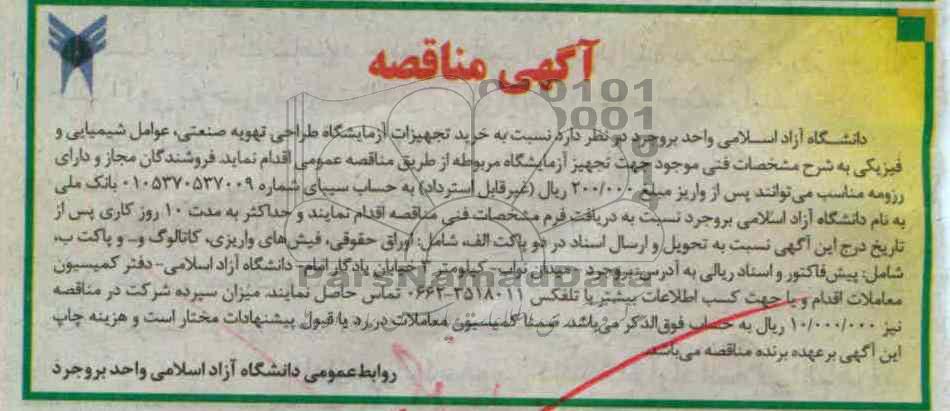 آگهی مناقصه
دانشگاه آزاد اسلامی واحد بروجرد در نظر دارد نسبت به خرید تجهیزات آزمایشگاه طراحی تهویه صنعتی، عوامل شیمیایی و
فیزیکی به شرح مشخصات فنی موجود جهت تجهیز آزمایشگاه مربوطه از طریق مناقصه عمومی اقدام نماید. فروشندگان مجاز و دارای
رزومه مناسب می‌توانند پس از واریز مبلغ ۲۰۰/۰۰۰ ریال (غیرقابل استرداد) به حساب سیبای شماره ۰۱۰۵۳۷۰۵۳۷۰۰۹ بانک ملی
به نام دانشگاه آزاد اسلامی بروجرد نسبت به دریافت فرم مشخصات فنی مناقصه اقدام نمایند و حداکثر به مدت ۱۰ روز کاری پس از
تاریخ درج این آگهی نسبت به تحویل و ارسال اسناد در دو پاکت الف، شامل: اوراق حقوقی، فیش‌های واریزی، کاتالوگ و... و پاکت ب،
شامل: پیش فاکتور و اسناد ریالی به آدرس: بروجرد - میدان نواب- کیلومتر ۳ خیابان یادگار امام- دانشگاه آزاد اسلامی- دفتر کمیسیون
معاملات اقدام و یا جهت کسب اطلاعات بیشتر با تلفکس ۳۵۱۸۰۱۱-۰۶۶۲ تماس حاصل نمایند. میزان سپرده شرکت در مناقصه
نیز ۱۰/۰۰۰/۰۰۰ ریال به حساب فوق‌الذکر می‌باشد. ضمنا کمیسیون معاملات در رد یا قبول پیشنهادات مختار است و هزینه چاپ
این آگهی برعهده برنده مناقصه می‌باشد.
روابط عمومی دانشگاه آزاد اسلامی واحد بروجرد
ParsNamadData